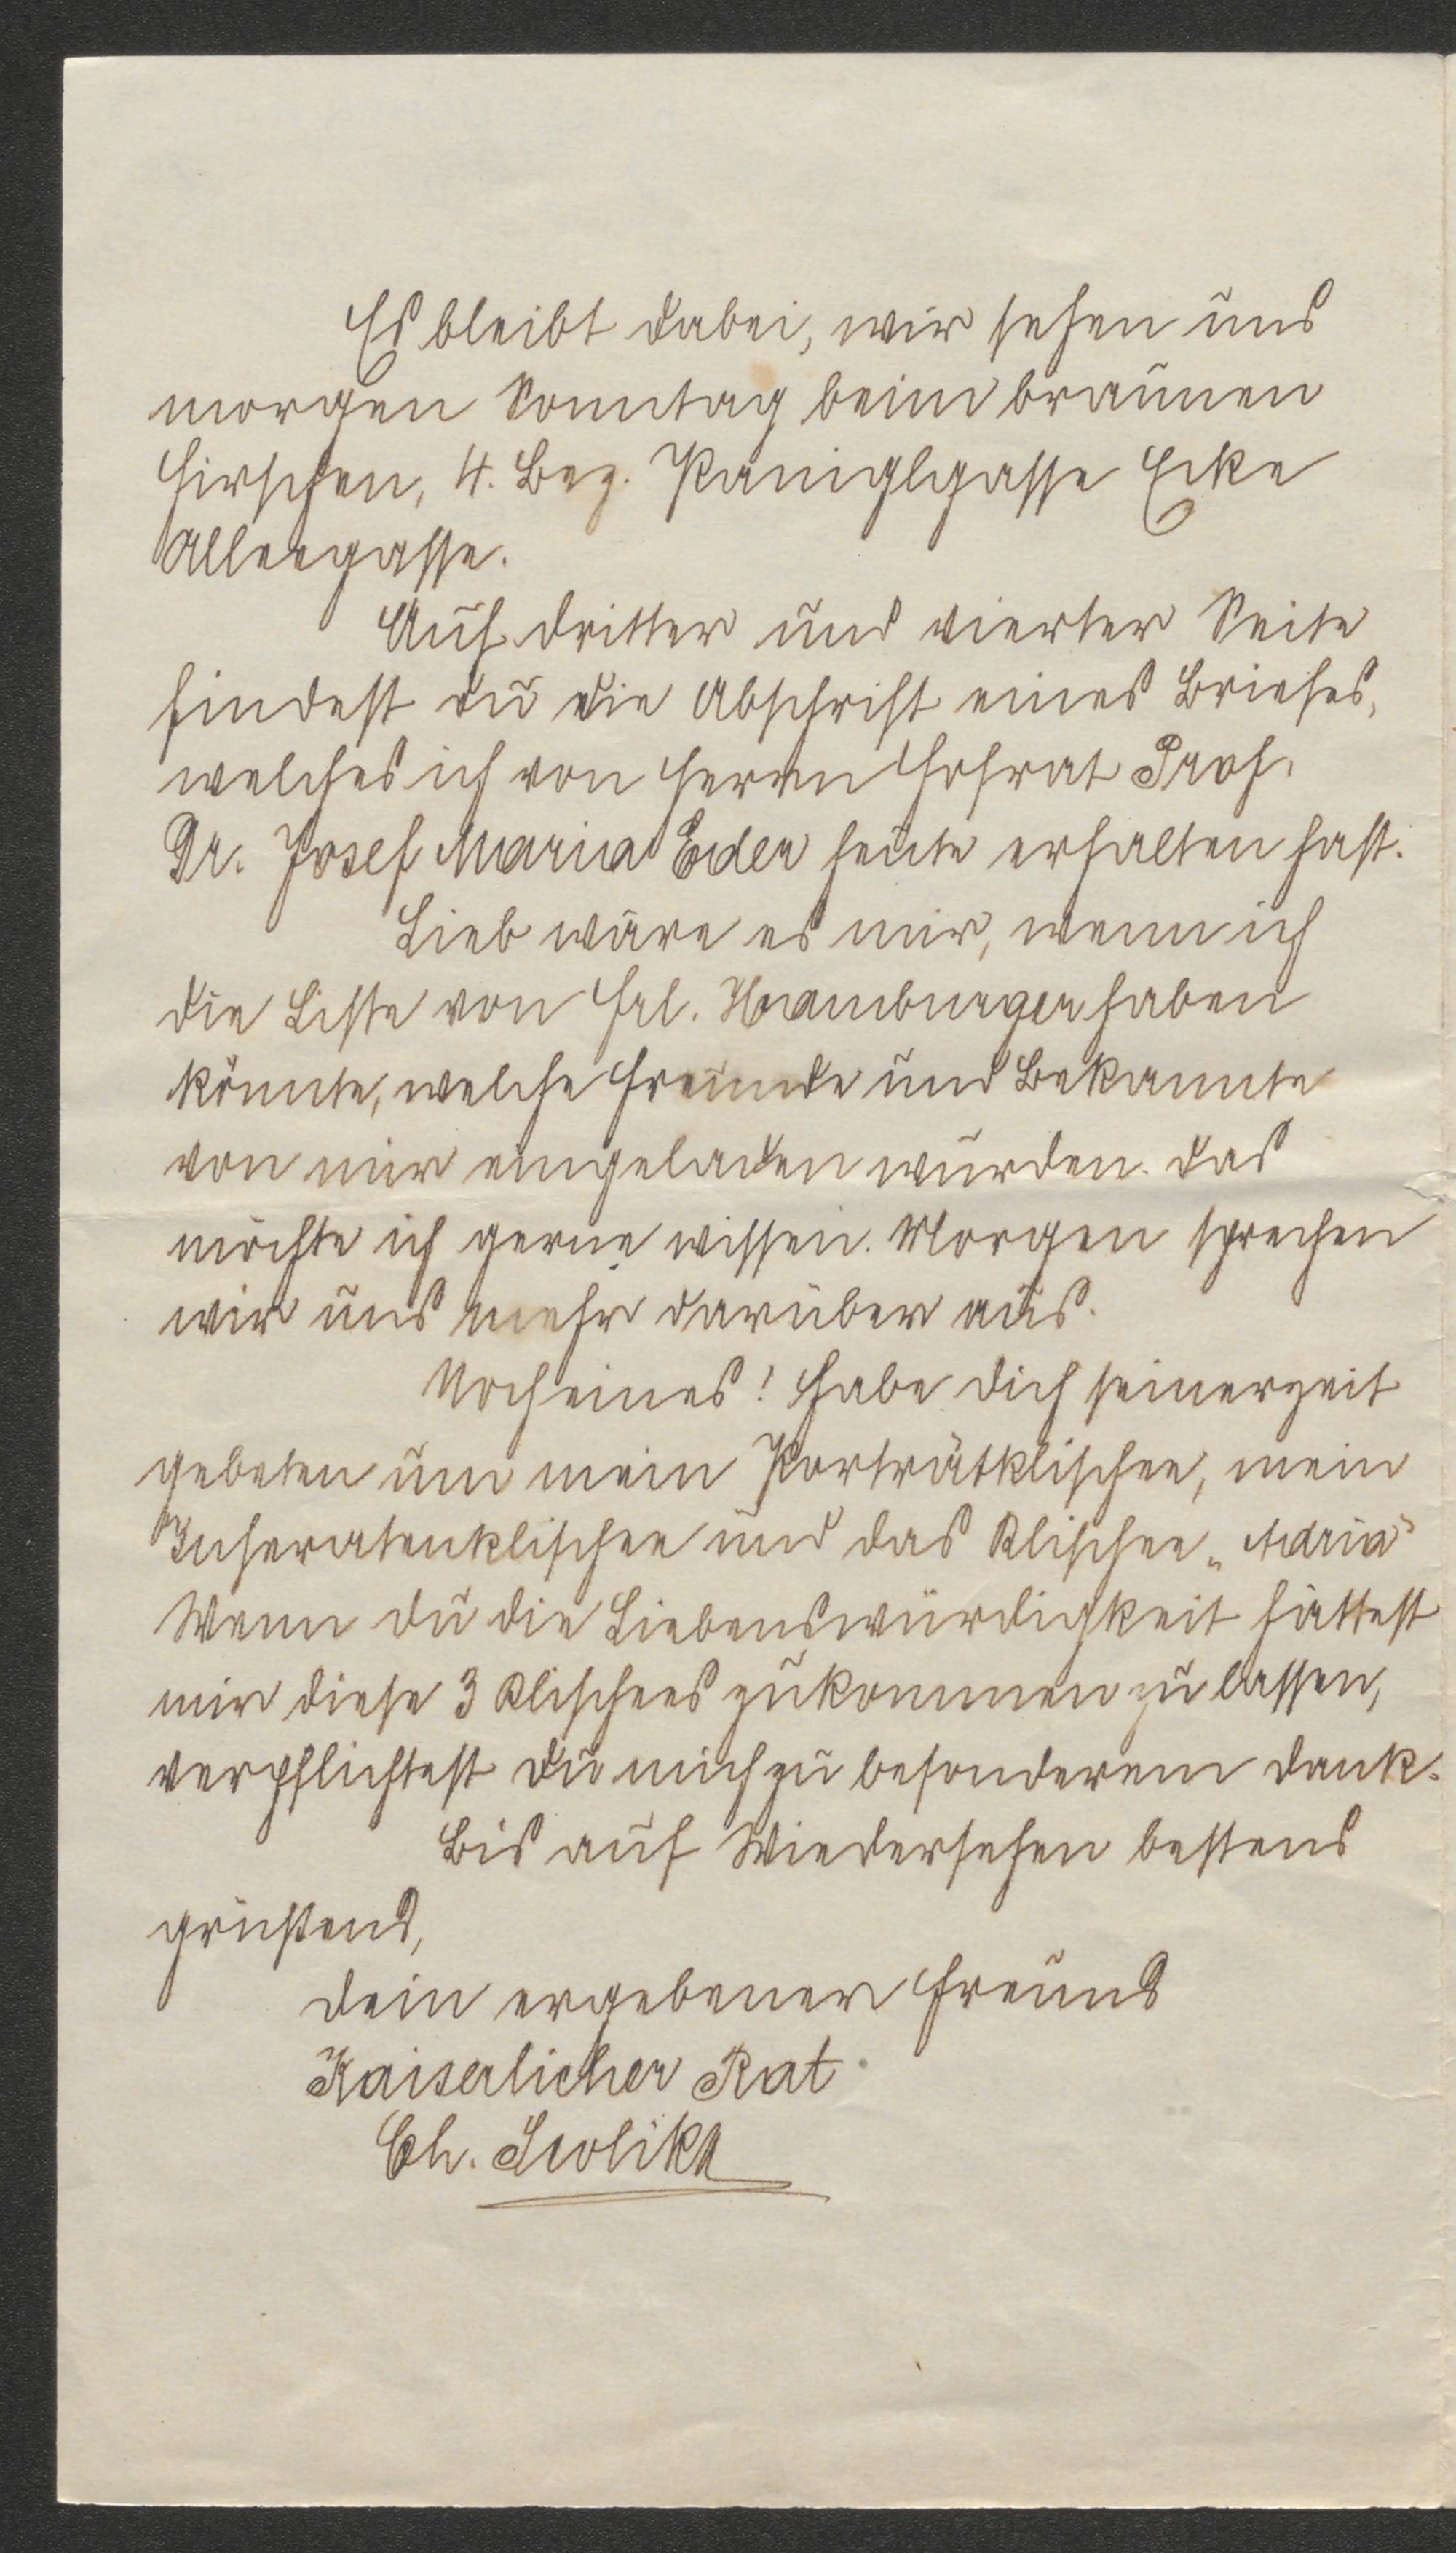 Es bleibt dabei, wir sehen uns
morgen Sonntag beim braunen
Hirschen, 4. Bez. Paniglgasse Ecke
Alleegasse.
Auf dritter und vierter Seite
findest du die Abschrift eines Briefes,
welches ich von Herrn Hofrat Prof.
Dr. Josef Maria Eder heute erhalten hast.
Lieb wäre es mir, wenn ich
die Liste von Frl. Hamburger haben
könnte, welche Freunde und Bekannte
von mir eingeladen wurden. Das
möchte ich gerne wissen. Morgen sprechen
wir uns mehr darüber aus.
Noch eines! Habe dich seinerzeit
gebeten um mein Porträtklischee, mein
Inseratenklischee und das Klischee „Adria“
Wenn du die Liebenswürdigkeit hättest
mir diese 3 Klischees zukommen zu lassen,
verpflichtest du mich zu besonderem Dank.
Bis auf Wiedersehen bestens
grüßend,
dein ergebener Freund
Kaiserlicher Rat
Ch. Scolik